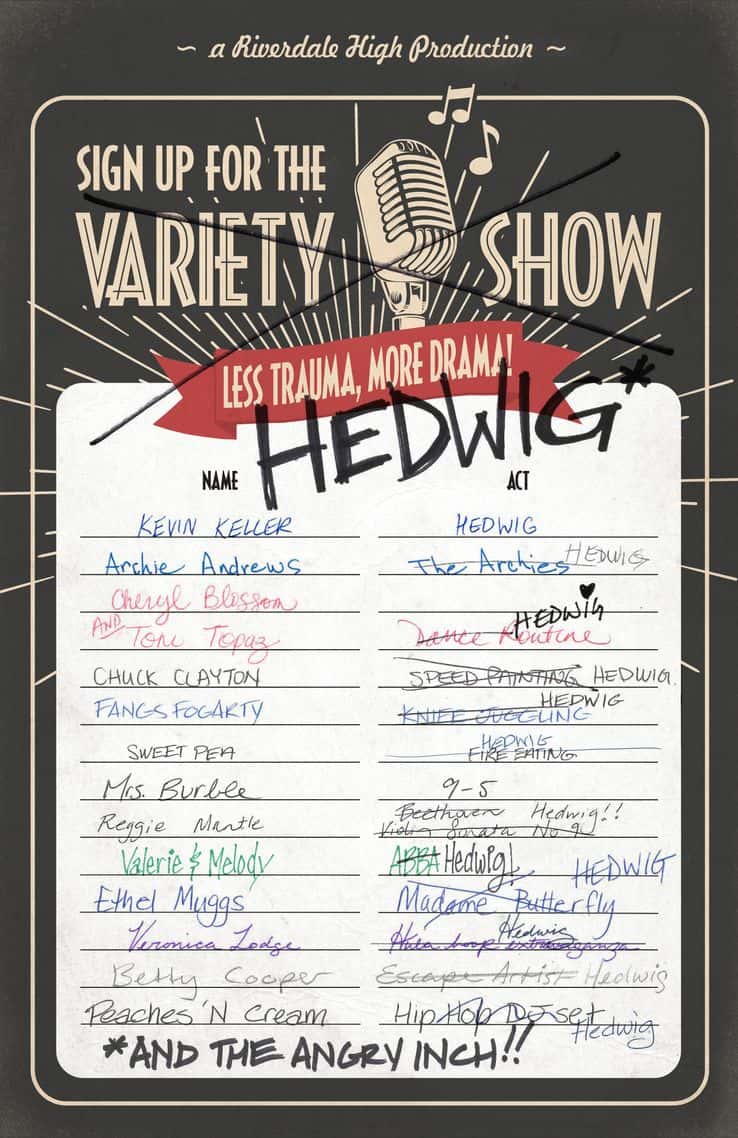 ~ a Riverdale High Production ~
SIGN UP FOR THE
VARIETY SHOW
LESS TRAUMA, MORE DRAMA!
HEDWIG*
NAME ACT
KEVIN KELLER HEDWIG
Archie Andrews The Archies HEDWIG
Cheryl Blossom
AND Toni Topaz Dance Routine HEDWIG
CHUCK CLAYTON SPEED PAINTING HEDWIG.
FANGS FOGARTY KNIFE JUGGLING HEDWIG
SWEET PEA FIRE EATING HEDWIG
Mrs. Burble 9-5
Reggie Mantle Beethoven Violin Sonata No 9 Hedwig!!
Valerie & Melody ABBA Hedwig!
Ethel Muggs Madame Butterfly HEDWIG
Veronica Lodge Hula hoop extravaganza Hedwig
Betty Cooper Escape Artist Hedwig
Peaches 'N Cream Hip Hop DJ set Hedwig
*AND THE ANGRY INCH!!